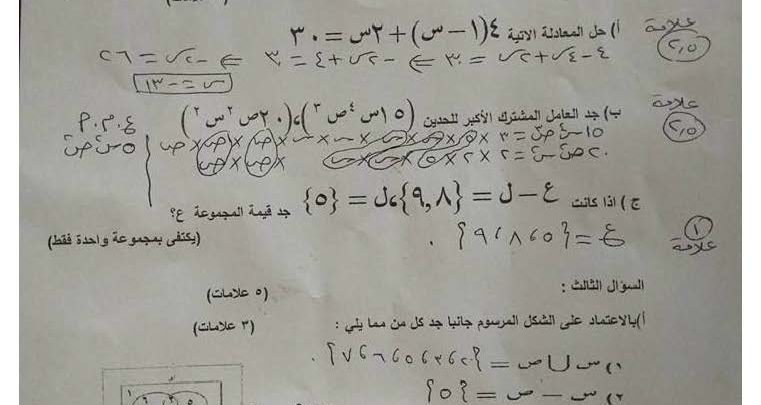 أ) حل المعادلة الاتية ٤(١ – س) + ٢س = ٣٠
علامة ٢,٥
٤ - ٤س + ٢س = ٣٠ ⇐ -٢س + ٤ = ٣٠ ⇐ -٢س = ٢٦
س = -١٣
ب) جد العامل المشترك الأكبر للحدين (١٥س٤ ص٣)، (٢٠ص٢ س٢)
علامة ٢,٥
ع.م.أ
١٥س٤ص٣ = ٣ × ٥ × س × س × س × س × ص × ص × ص
٥س٢ص٢
٢٠ص٢س٢ = ٢ × ٢ × ٥ × س × س × ص × ص
ج) اذا كانت ع – ل = {٩,٨}، ل = {٥} جد قيمة المجموعة ع؟
علامة ١
ع = {٥، ٨، ٩}.
(يكتفى بمجموعة واحدة فقط)
السؤال الثالث :
(٥ علامات)
أ) بالاعتماد على الشكل المرسوم جانبا جد كل من مما يلي :
(٣ علامات)
١) س U ص = {٢، ٣، ٤، ٥، ٦، ٧}.
٢) س – ص = {٥}